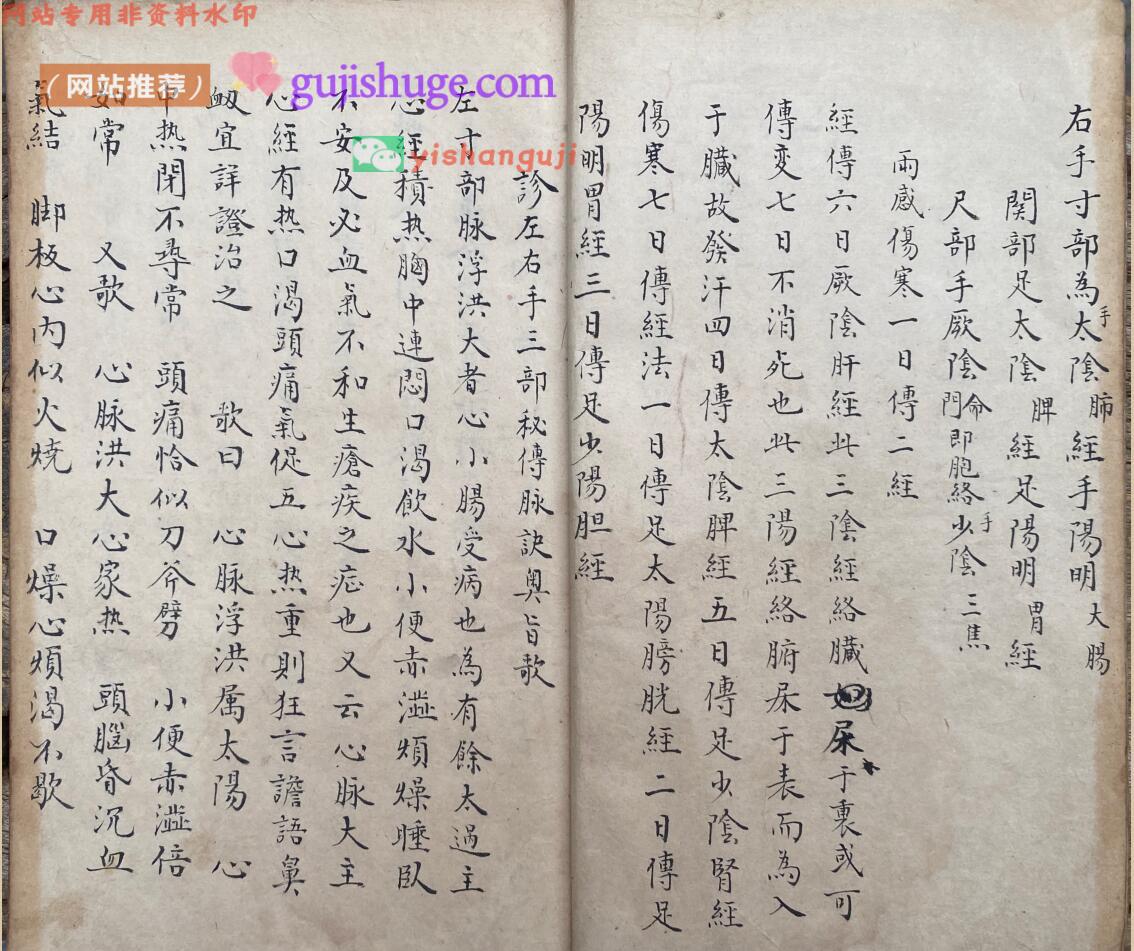 网站专用非资料水印
（网站推荐）
gujishuge.com
yishanguji
右手寸部為手太陰肺經手陽明大腸
関部足太陰脾經足陽明胃經
尺部手厥陰命門即胞絡手少陰三焦
兩感傷寒一日傳二經
經傳六日厥陰肝經此三陰經絡臟屎于裏或可
傳变七日不消死也此三陽經絡腑屎于表而為入
于臟故發汗四日傳太陰脾經五日傳足少陰腎經
傷寒七日傳經法一日傳足太陽膀胱經二日傳足
陽明胃經三日傳足少陽胆經
診左右手三部秘傳脉訣奧旨歌
左寸部脉浮洪大者心小腸受病也為有餘太過主
心經積热胸中連悶口渴飲水小便赤澁煩燥睡臥
不安及必血氣不和生瘡疾之症也又云心脉大主
心經有热口渴頭痛氣促五心热重則狂言譫語鼻
衂宜詳證治之 歌曰 心脉浮洪属太陽 心
中热閉不尋常 頭痛恰似刀斧劈 小便赤澁倍
如常 又歌 心脉洪大心家热 頭腦昏沉血
氣結 脚板心内似火燒 口燥心煩渴不歇